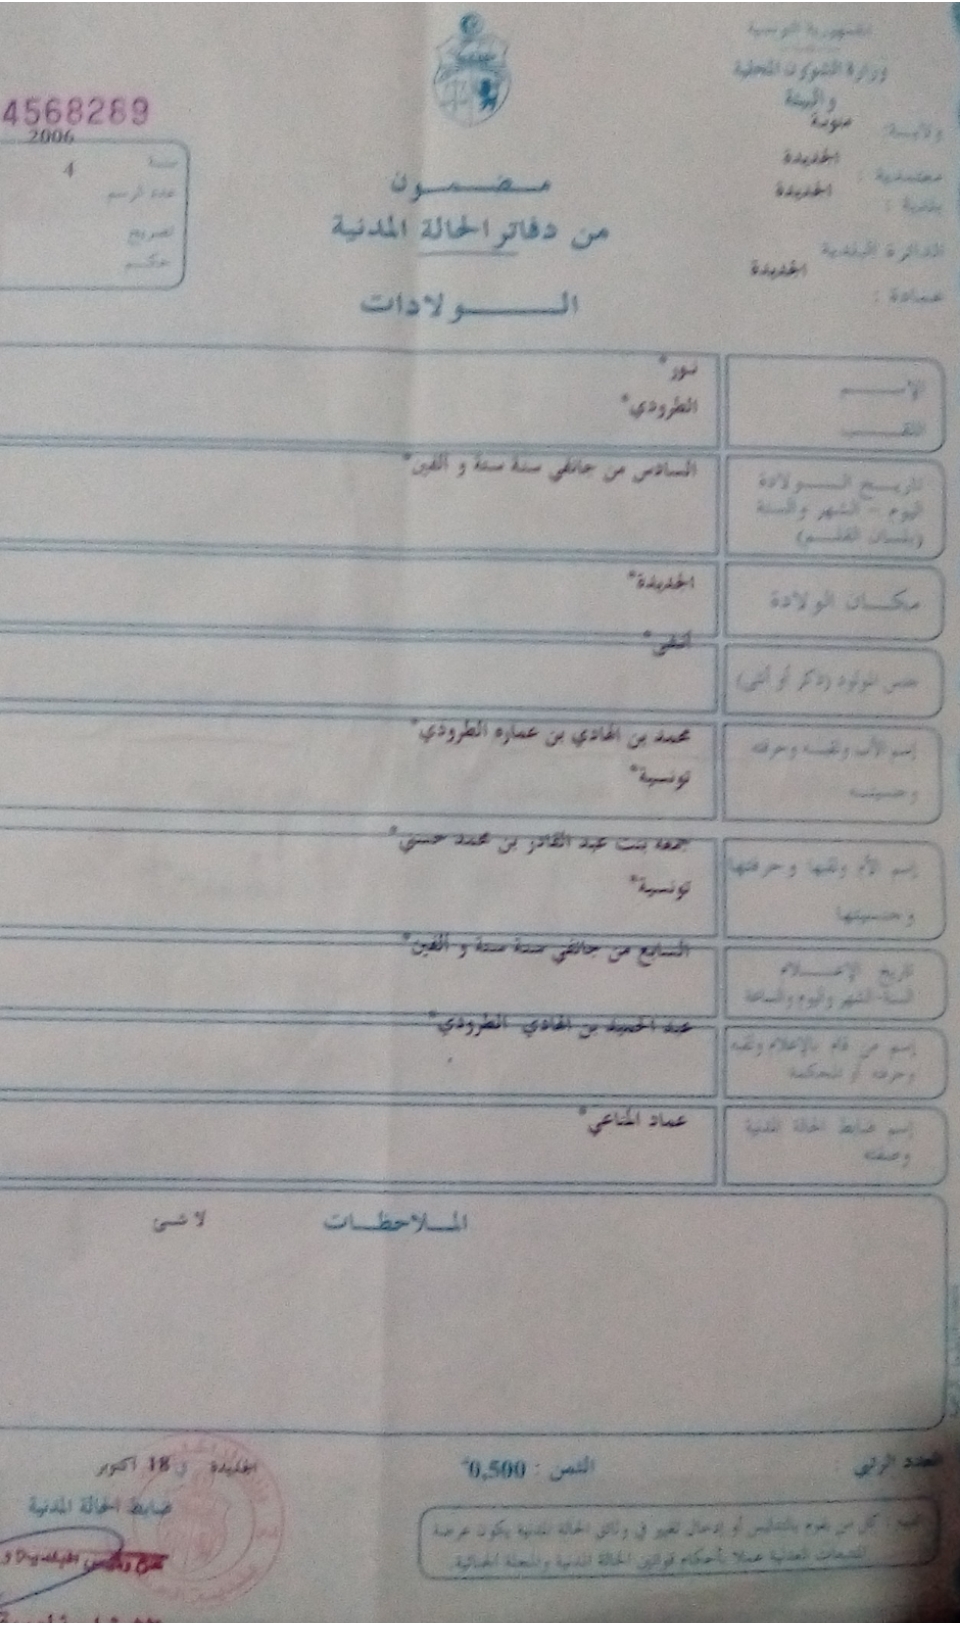 الجمهورية التونسية
وزارة الشؤون المحلية
والبيئة
ولاية: منوبة
معتمدية : الجديدة
بلدية : الجديدة
الدائرة البلدية
الجديدة
عمادة :
4568289
2006
سنة
4
عدد الرسم
تصريح
حكم
مضمون
من دفاتر الحالة المدنية
الولادات
الاسم
نور*
اللقب
الطرودي*
تاريخ الولادة
السادس من جانفي سنة ستة و ألفين*
اليوم - الشهر والسنة
(بلسان القلم)
مكان الولادة
الجديدة*
جنس المولود (ذكر أو أنثى)
أنثى*
إسم الأب ولقبه وحرفته
محمد بن الهادي بن عماره الطرودي*
وجنسيته
تونسية*
إسم الأم ولقبها وحرفتها
جمعه بنت عبد القادر بن محمد حسني*
وجنسيتها
تونسية*
تاريخ الإعلام
السابع من جانفي سنة ستة و ألفين*
السنة-الشهر واليوم والساعة
إسم من قام بالإعلام ولقبه
عبد الحميد بن الهادي الطرودي*
وحرفته أو المحكمة
إسم ضابط الحالة المدنية
عماد المناعي*
وصفته
الملاحظات
لا شئ
العدد الرتبي :
الثمن : 0,500
الجديدة في 18 أكتوبر
ضابط الحالة المدنية
تنبيه : كل من يقوم بالتدليس أو إدخال تغيير في وثائق الحالة المدنية يكون عرضة
للتتبعات العدلية عملا بأحكام قوانين الحالة المدنية والمجلة الجنائية.